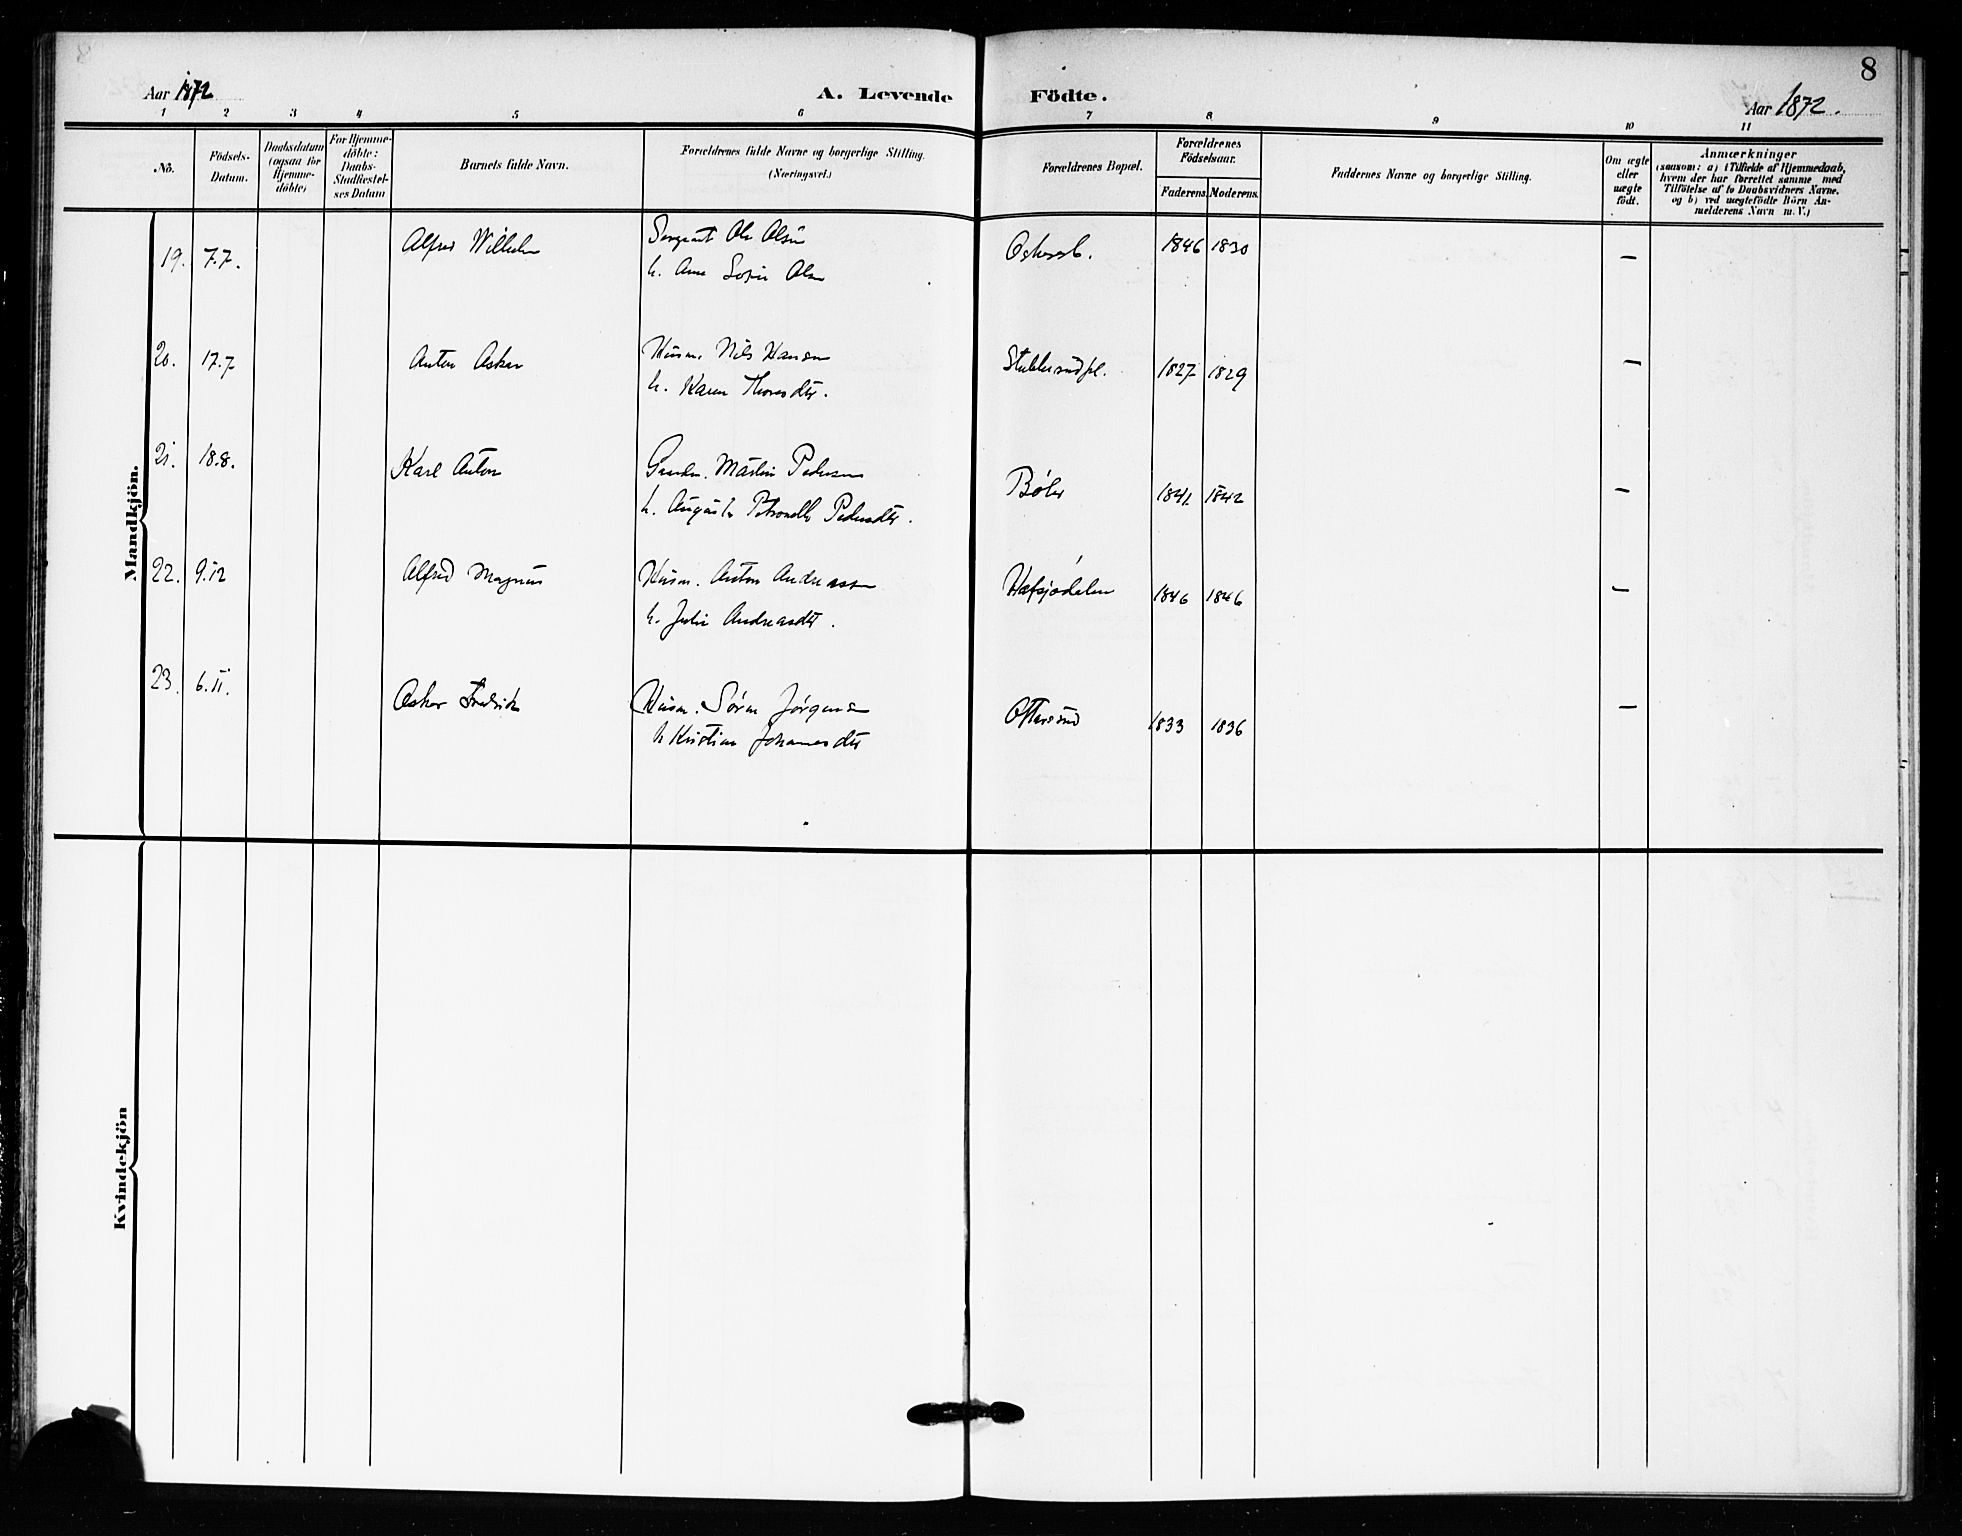 8
Aar 1872
A. Levende Födte.
Aar 1872.
1 2 3 4 5 6 7 8 9 10 11
No.
Födsels-
Datum.
Daabsdatum
(ogsaa for
Hjemme-
döbte)
For Hjemme-
döbte:
Daabs-
Stadfæstel-
ses Datum
Barnets fulde Navn.
Forældrenes fulde Navne og borgerlige Stilling.
(Næringsvei.)
Forældrenes Bopæl.
Forældrenes
Födselsaar.
Faderens Moderens.
Faddernes Navne og borgerlige Stilling.
Om ægte
eller
uægte
födt.
Anmærkninger
(saasom: a) i Tilfælde af Hjemmedaab,
hvem der har forrettet samme med
Tilföielse af to Daabsvidners Navne,
og b) ved uægtefödte Börn An-
melderens Navn m. V.)
Mandkjön.
19. 7.7. Alfred Wilhelm Sergeant Ole Olsen 1846 1830 —
h. Ane Sofie Olsen
20. 17.7 Anton Oskar Husm. Nils Hansen Stubbersudpl. 1827 1829 —
h. Karen Thoresdtr.
21. 18.8. Karl Anton Martin Pedersen Bøler 1841 1842 —
h. Augusta Petronelle Pedersdtr.
22. 9.12 Alfred Magnus Husm. Anton Andreassen Hafsjødalen 1846 1846 —
h. Julie Andreasdtr.
23. 6.11. Oskar Fredrik Husm. Søren Jørgensen Ottersrud 1833 1836 —
h Kristine Johannesdtr
Kvindekjön